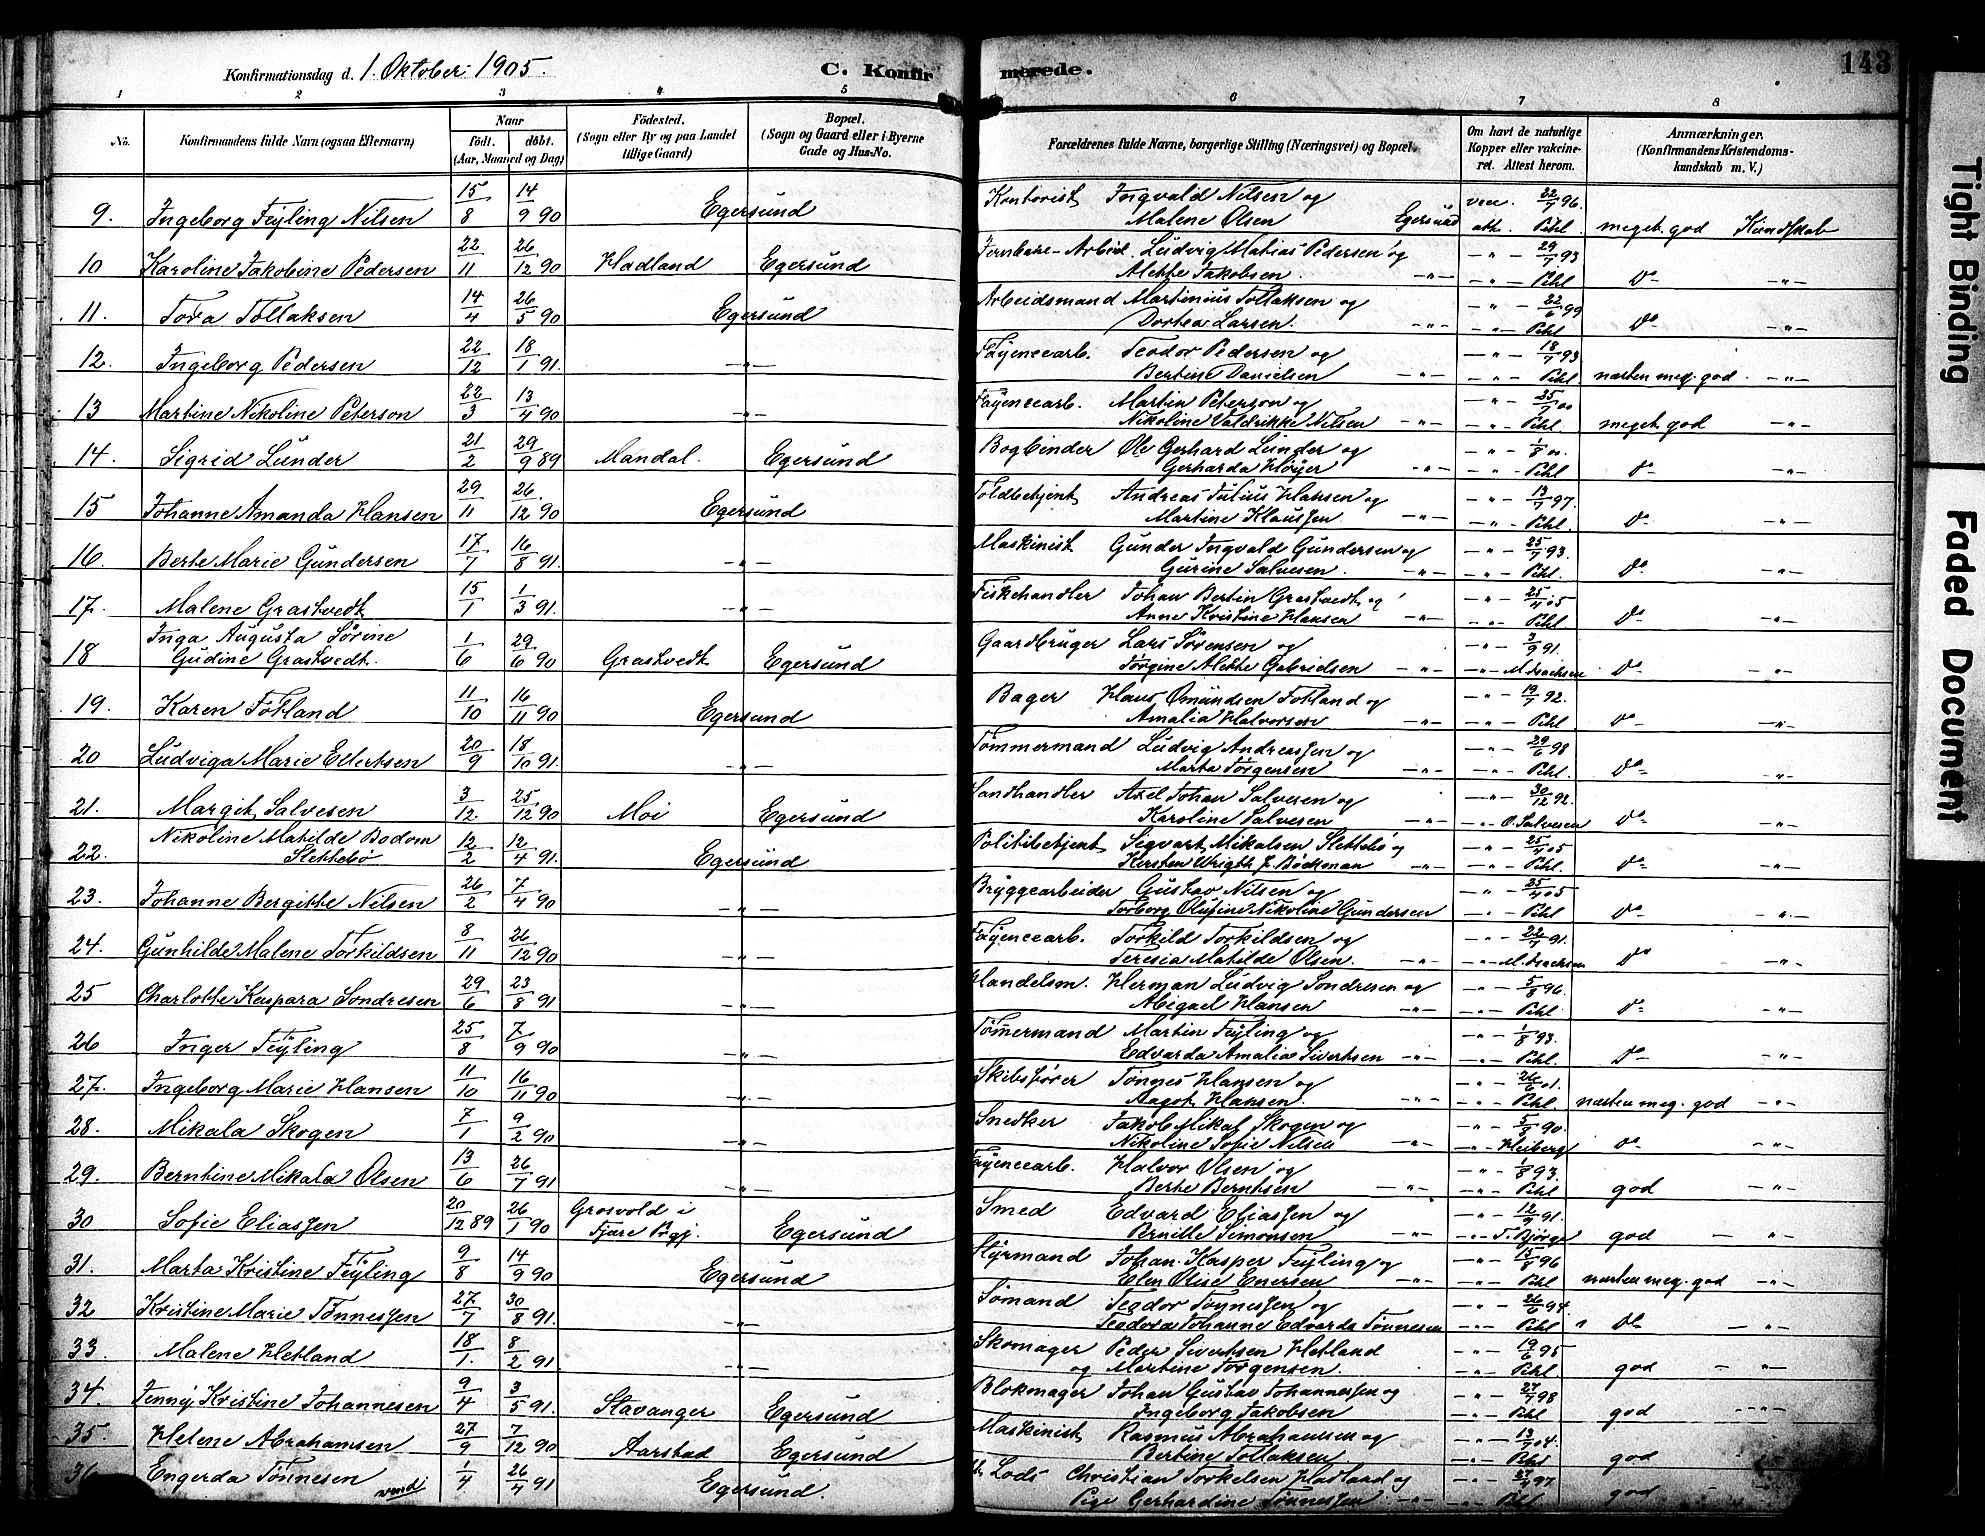 Konfirmationsdag d. 1. Oktober 1905. C. Konfirmerede. 143
1 2 3 4 5 6 7 8
No. Konfirmandens fulde Navn (ogsaa Efternavn) Naar født. døbt. (Aar, Maaned og Dag) Fødested. (Sogn eller By og paa Landet tillige Gaard) Bopæl. (Sogn og Gaard eller i Byerne Gade og Hus-No. Forældrenes fulde Navne, borgerlige Stilling (Næringsvei) og Bopæl. Om havt de naturlige Kopper eller vakcineret. Attest herom. Anmærkninger. (Konfirmandens Kristendomskundskab m. V.)
9. Ingeborg Fejling Nilsen 15/8 14/9 90 Egersund Kontorist Ingvald Nilsen og vac. 22/7 96.
Malene Olsen Egersund att. Pihl meget god Kundskab
10 Karoline Jakobine Pedersen 22/11 26/12 90 Hadland Egersund Jernbane-Arbeid. Ludvig Matias Pedersen og -"- 29/7 93
Alette Jakobsen. -"- -"- Pihl Do -"-
11. Tora Tollaksen 14/4 26/5 90 Egersund Arbeidsmand Martinius Tollaksen og -"- 22/6 99
Dortea Larsen. -"- -"- Pihl Do -"-
12. Ingeborg Pedersen 22/12 18/1 91. -"- Fayencearb. Teodor Pedersen og -"- 18/7 93
Bertine Danielsen -"- -"- Pihl. næsten meg. god -"-
13 Martine Nikoline Peterson 22/3 13/4 90 -"- Fayencearb. Martin Peterson og -"- 25/7 00
Nikoline Valdrikke Nilsen -"- -"- Pihl. meget god -"-
14. Sigrid Lunder 21/2 29/9 89 Mandal. Egersund Bogbinder Ole Gerhard Lunder og -"- 1/8 00.
Gerharda Høyer -"- -"- Pihl Do -"-
15 Johanne Amanda Hansen 29/11 26/12 90 Egersund Toldbetjent Andreas Julius Hansen og -"- 13/7 97.
Martine Klaussen. -"- -"- Pihl Do -"-
16. Berte Marie Gundersen 17/7 16/8 91. -"- Maskinist Gunder Ingvald Gundersen og -"- 25/7 93.
Gurine Salvesen. -"- -"- Pihl. Do -"-
17. Malene Grastvedt 15/1 1/3 91. -"- Fiskehandler Johan Bertin Grastvedt og -"- 25/4 05
Anne Kristine Hansen -"- -"- Pihl Do -"-
18 Inga Augusta Sørine Gudine Grastvedt. 1/6 29/6 90 Grastvedt Egersund Gaardbruger Lars Sørensen og -"- 3/9 91.
Jørgine Alette Gabrielsen -"- -"- M. Isachsen Do -"-
19. Karen Fotland 11/10 16/11 90 Egersund Bager Hans Omundsen Fotland og -"- 19/7 92.
Amalia Halvorsen -"- -"- Pihl Do -"-
20 Ludviga Marie Ellertsen 20/9 18/10 91. -"- Tømmermand Ludvig Andreassen og -"- 29/6 98
Marta Jørgensen -"- -"- Pihl. Do -"-
21. Margit Salvesen 3/12. 25/12 90 Moi Egersund Landhandler Axel Johan Salvesen og -"- 30/12 92.
Karoline Salvesen -"- -"- O. Salvesen Do -"-
22. Nikoline Matilde Bodom Slettebø 12/2 12/4 91. Egersund Politibetjent Sigvart Mikalsen Slettebø og -"- 25/4 05
Kersten Wrigth f. Bøckman -"- -"- Pihl. Do -"-
23. Johanne Bergitte Nilsen 26/2 7/4 90 -"- Bryggearbeider Gustav Nilsen og -"- 25/4 05
Torborg Olufine Nikoline Gundersen -"- Pihl Do -"-
24. Gunhilde Malene Torkildsen 8/11 26/12 90 -"- Fayencearb. Torkild Torkildsen og -"- 22/7 91.
Teresia Matilde Olsen. -"- -"- M. Isachsen Do -"-
25 Charlotte Kaspara Sondresen 29/6 23/8 91 -"- Handelsm. Herman Ludvig Sondresen og -"- 5/8 96.
Abigael Hansen -"- -"- Pihl. Do -"-
26 Inger Fejling 25/8 7/9 90 -"- Tømermand Martin Fejling og -"- 1/8 93.
Edvarda Amalia Sivertsen -"- -"- Pihl. Do -"-
27. Ingeborg Marie Hansen 11/10 16/11 90 -"- Skibsfører Tønnes Hansen og -"- 26/6 01.
Aagot Hansen. -"- -"- Pihl. næsten meg. god -"-
28. Mikala Skogen 7/1 9/2 90 -"- Snedker Jakob Mikal Skogen og -"- 5/8 90.
Nikoline Sofie Nilsen -"- -"- Heiberg Do -"-
29. Berntine Mikala Olsen 13/6 26/7 91 -"- Fayencearb. Halvor Olsen og -"- 1/8 93.
Berte Berntsen -"- -"- Pihl god -"-
30 Sofie Eliassen 20/12 89 26/1 90 Grosvold i Fjære Prgj. Egersund Smed Edvard Eliassen og -"- 12/9 91.
Pernille Simonsen -"- -"- T. Bjørge god -"-
31. Marta Kristine Fejling 9/8 14/9 90 Egersund Styrmand Johan Kasper Fejling og -"- 15/8 96
Elen Elise Enersen -"- -"- Pihl næsten meg. god -"-
32 Kristine Marie Tønnessen 27/7 30/8 91. -"- Sømand Teodor Tønnessen og -"- 26/6 94.
Teodora Johanne Edvarda Tønnesen -"- Pihl Do -"-
33. Malene Hetland 18/1. 8/2 91 -"- Skomager Peder Sivertsen Hetland -"- 19/6 95
og Martine Jørgensen. -"- Pihl. god -"-
34. Jenny Kristine Johannesen 9/4 3/5 91. Stavanger Egersund Blokmager Johan Gustav Johannessen og -"- 27/7 98
Ingeborg Jakobsen -"- Pihl god -"-
35. Helene Abrahamsen 27/9 7/12 90 Aarstad Egersund Maskinist Rasmus Abrahamsen og -"- 13/7 04.
Bertine Tollaksen -"- Pihl god
36 Engerda Tønnesen vend 1/4 26/4 91 Egersund. Lods Christian Torkelsen Hadland og -"- 27/4 97
Pige Gerhardine Tønnessen -"- -"- Pihl. god
Tight Binding
Faded Document